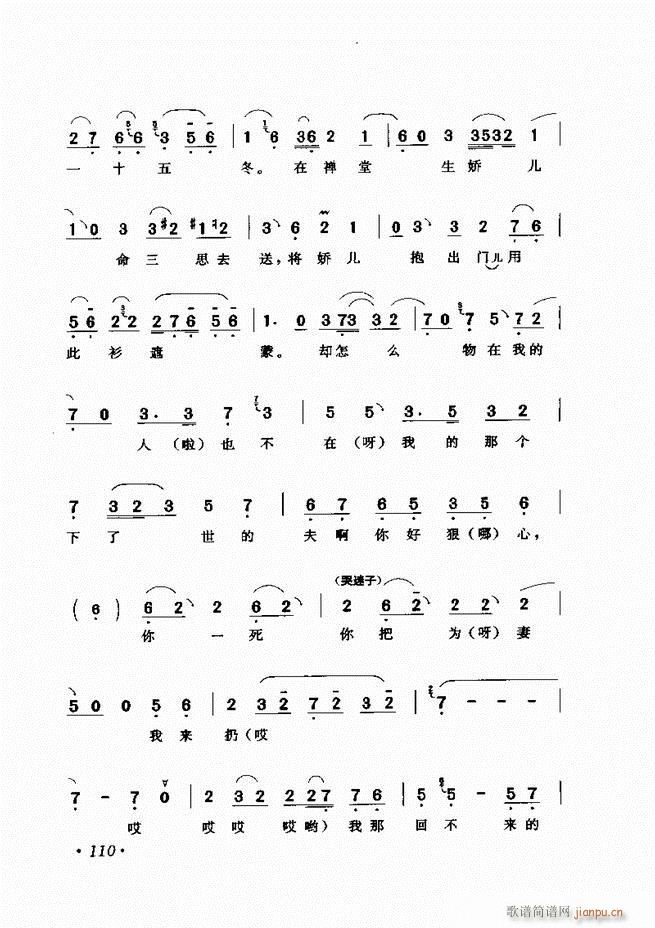 2 7 6 6 3 5 6 | 1 6 3 6 2 1 | 6 0 3 3532 1 |
一十五 冬。在禅堂 生娇儿
1 0 3 3 #2 #1 2 | 3 6 2 1 | 0 3 3 2 7 6 |
命三思去 送,将娇儿 抱出门儿用
5 6 2 2 2 7 6 5 6 | 1· 0 3 73 3 2 | 7 0 7 5 7 2 |
此衫遮 蒙。却怎么 物在我的
7 0 3· 3 7 3 | 5 5 3· 5 3 2 |
人(啦)也不 在(呀)我的那个
7 3 2 3 5 7 | 6 7 6 5 3 5 6 |
下了 世的 夫啊你好狠(哪)心,
(哭迷子)
(6) 6 2 2 6 2 | 2 6 2 2 2 2 |
你一死 你把为(呀)妻
5 0 0 5 6 | 2 3 2 7 2 3 2 | 7 - - - |
我来 扔(哎
7 - 7 0 | 2 3 2 2 2 7 7 6 | 5 5 - 5 7 |
哎 哎哎哎哟)我那 回不来的
·110·
歌谱简谱网 jianpu.cn